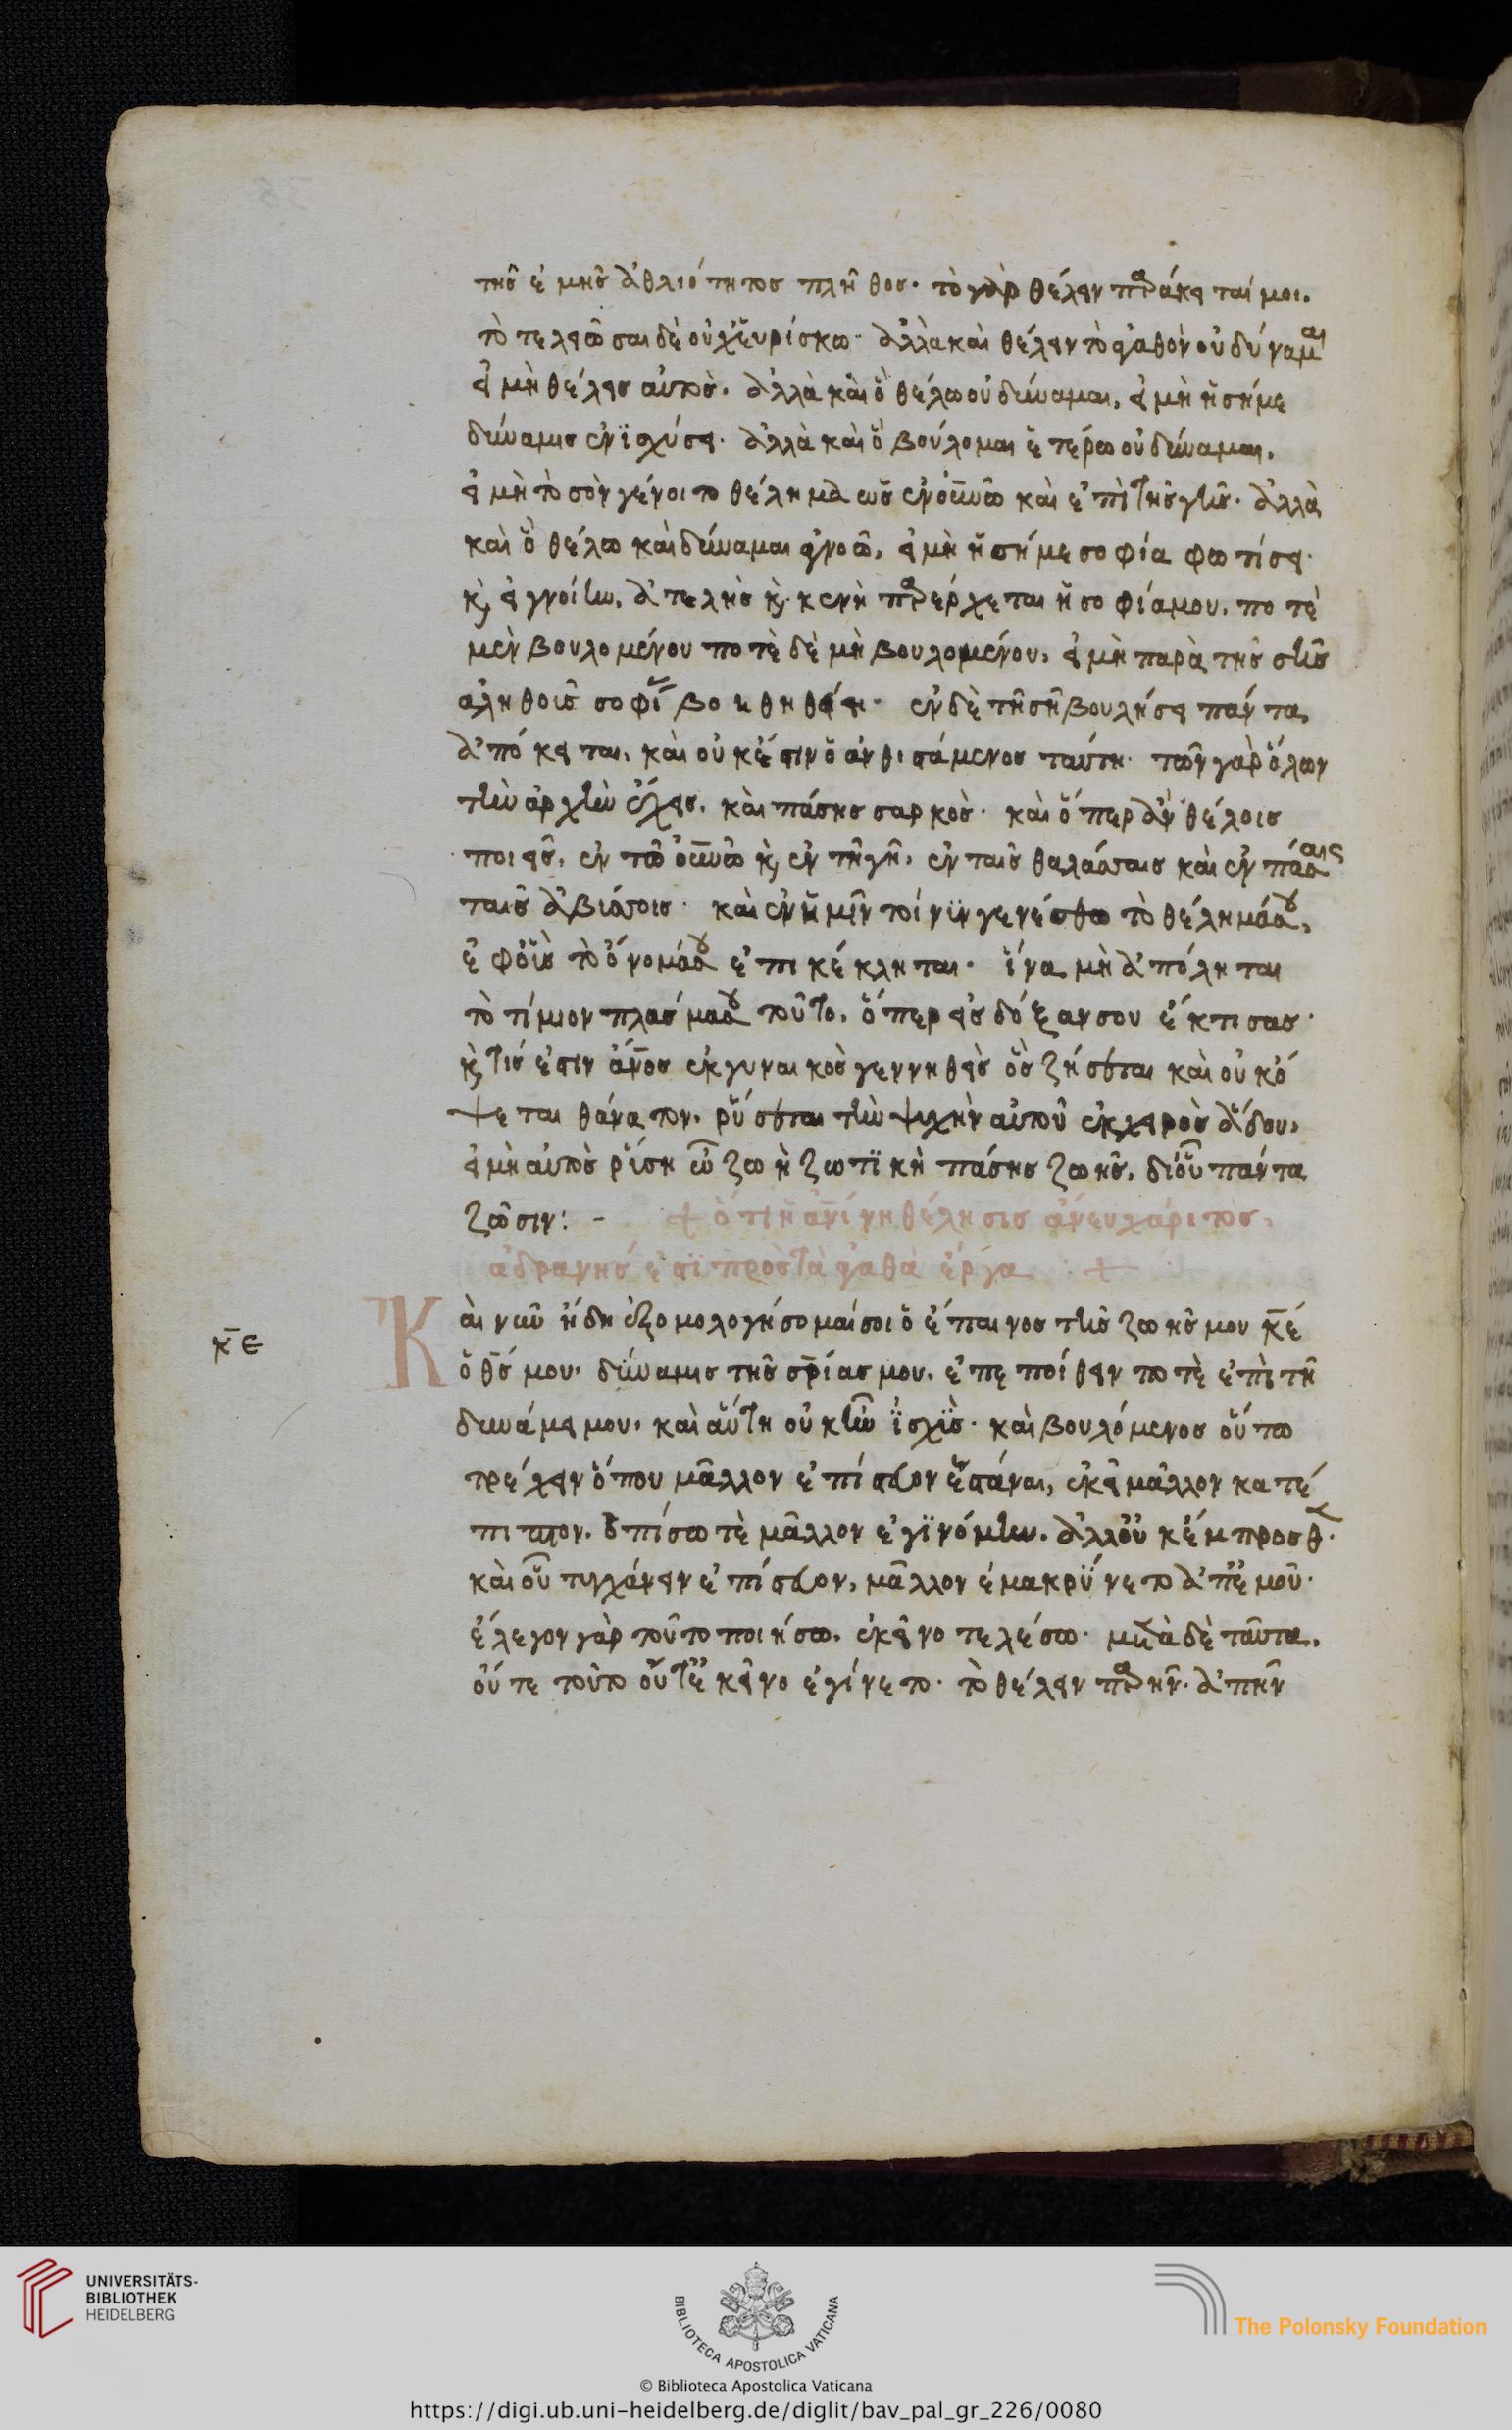 τῆς ἐμῆς ἀθλιότητος πλῆθος· τὸ γὰρ θέλειν παράκειταί μοι.
τὸ τελειῶσαι δὲ οὐχ εὑρίσκω· ἀλλὰ καὶ θέλειν τὸ ἀγαθὸν οὐ δύναμαι
εἰ μὴ θέλεις αὐτός. ἀλλὰ καὶ ὃ θέλω οὐ δύναμαι, εἰ μὴ ἡ σή με
δύναμις ἐνϊσχύσει· ἀλλὰ καὶ ὃ βούλομαι ἑτέρω οὐ δύναμαι.
εἰ μὴ τὸ σὸν γένοιτο θέλημα ὡς ἐν οὐνῶ καὶ ἐπὶ τῆς γῆς· ἀλλὰ
καὶ ὃ θέλω καὶ δύναμαι ἀγνοῶ, εἰ μὴ ἡ σή με σοφία φωτίσει·
κ, εἰ γνοίην, ἀτελὴς κ, κενὴ παρέρχεται ἡ σοφία μου. ποτὲ
μὲν βουλομένου ποτὲ δὲ μὴ βουλομένου, εἰ μὴ παρὰ τῆς σῆς
ἀληθοῦς σοφί βοηθηθείη· ἐν δὲ τῆ σῆ βουλήσει πάντα
ἀπόκειται, καὶ οὐκ ἔστιν ὁ ἀνθιστάμενος ταύτη· τῶν γὰρ ὅλων
τὴν ἀρχὴν ἔχεις, καὶ πάσης σαρκός· καὶ ὅπερ ἀν θέλοις
ποιεῖς, ἐν τῶ οὐνῶ κ, ἐν τῆ γῆ, ἐν ταῖς θαλάσσαις καὶ ἐν πάσαις
ταῖς ἀβύσσοις· καὶ ἐν ἡμῖν τοίνϋν γενέσθω τὸ θέλημά σου,
ἐφ οὓς τὸ ὄνομά σου ἐπικέκληται· ἵνα μὴ ἀπόληται
τὸ τίμιον πλάσμα σου τοῦτο, ὅπερ εἰς δόξαν σου ἔκτισας·
κ, τίς ἐστιν ἄνος ἐκ γυναικὸς γεννηθεὶς ὃς ζήσεται καὶ οὐκ ό
ψεται θάνατον, ῥύσεται τὴν ψυχὴν αὐτοῦ ἐκ χειρὸς ἅδου,
εἰ μὴ αὐτὸς ῥύση ὦ ζωὴ ζωτϊκὴ πάσης ζωῆς, δι οὗ πάντα
ζῶσιν:-   + ὅτι ἡ ἀνίνη θέλησις ἄνευ χάριτος,
ἀδρανής ἐστϊ πρὸς τὰ ἀγαθὰ ἔργα +
κε
Καὶ νῦν ἤδη ἐξομολογήσομαί σοι ὁ ἔπαινος τῆς ζωῆς μου κέ
ὁ θς μου, δύναμις τῆς σρίας μου. ἐπεποίθειν ποτὲ ἐπὶ τῆ
δυνάμει μου, καὶ αὕτη οὐκ ἦν ἰσχϋς· καὶ βουλόμενος οὕτω
τρέχειν ὅπου μᾶλλον ἐπίστευον ἑστάναι, ἐκεῖ μᾶλλον κατέ
πιπτον. ὀπίσω τὲ μᾶλλον ἐγϊνόμην, ἀλλ οὐκ ἔμπροσθεν·
καὶ οὗ τυγχάνειν ἐπίστευον, μᾶλλον ἐμακρΰνετο ἀπ ἐμοῦ·
ἔλεγον γὰρ τοῦτο ποιήσω, ἐκεῖνο τελέσω· μετὰ δὲ ταῦτα,
οὔτε τοῦτο οὔτ ἐκεῖνο ἐγίνετο· τὸ θέλειν παρῆν· ἀπῆν
UNIVERSITÄTS-
BIBLIOTHEK
HEIDELBERG
BIBLIOTECA APOSTOLICA VATICANA
The Polonsky Foundation
© Biblioteca Apostolica Vaticana
https://digi.ub.uni-heidelberg.de/diglit/bav_pal_gr_226/0080